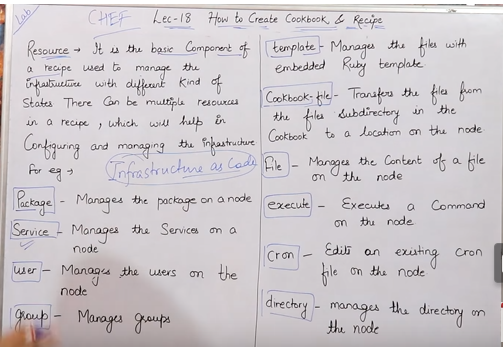 Lab
CHEF Lec-18 How to Create Cookbook & Recipe
Resource → It is the basic Component of
a recipe used to manage the
infrastructure with different Kind of
States There Can be multiple resources
in a recipe, which will help in
Configuring and managing the infrastructure
For eg → Infrastructure as Code
Package - Manages the package on a node
Service - Manages the Services on a
node
user - Manages the users on the
node
group - Manages groups
template - Manages the files with
embedded Ruby template
Cookbook-file - Transfers the files from
the files subdirectory in the
Cookbook to a location on the node
File - Manages the Content of a file
on the node
execute - Executes a Command
on the node
Cron - Edits an existing Cron
file on the node
directory - manages the directory on
the node